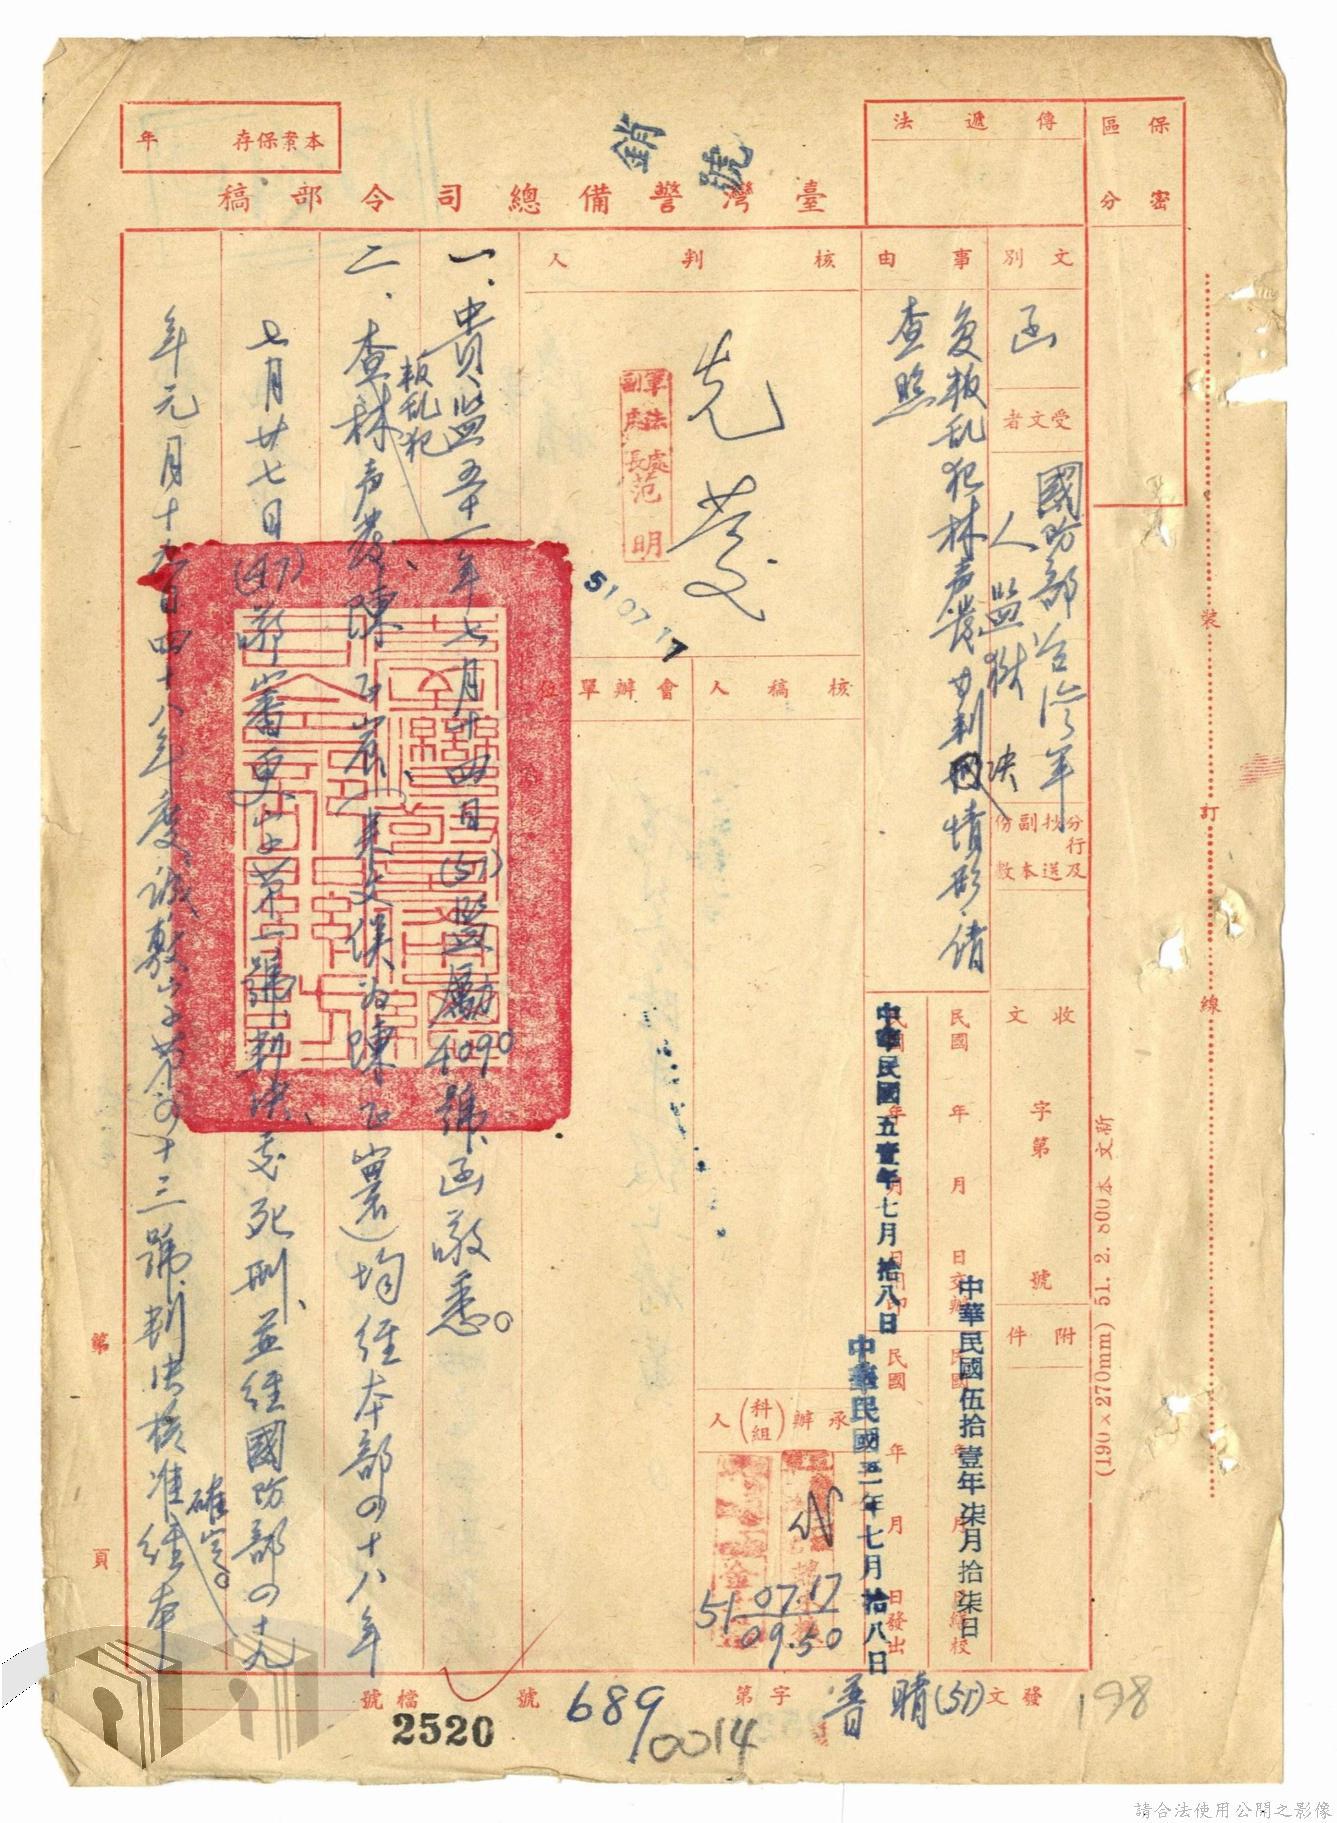 保密
區分
傳遞法
銷號
本案保存 年
臺灣警備總司令部稿
文別
函
受文者
國防部台灣軍
人監獄
分行及抄送副本份數
收文 字第 號
附件
事由
复叛乱犯林声發廿判決情形請
查照
民國 年 月 日交辦
中華民國伍拾壹年柒月拾柒日
民國 年 月 日繕校
民國 年 月 日用印
中華民國五壹年七月拾八日
民國 年 月 日發出
中華民國五一年七月拾八日
核判人
先發
軍法處
副處長 范明
51 07 17
核稿人
會辦單位
承辦(科組)人
51 07.17
09.50
一、貴監五十一年七月十四日(51)監勵4090號函敬悉。
二、查叛乱犯林声發、陳正宸(來文候为陳正農)均经本部四十八年
七月廿七日(47)審更字第二號判决处死刑、並经國防部四十九
年元月十九日四十八年度誠敷字第四十三號判决核准確定。经本
發文(51)普晴字第 號
689
0014
198
檔號
2520
第 頁
裝 訂 線
(190×270mm) 51. 2. 800本 文新
請合法使用公開之影像